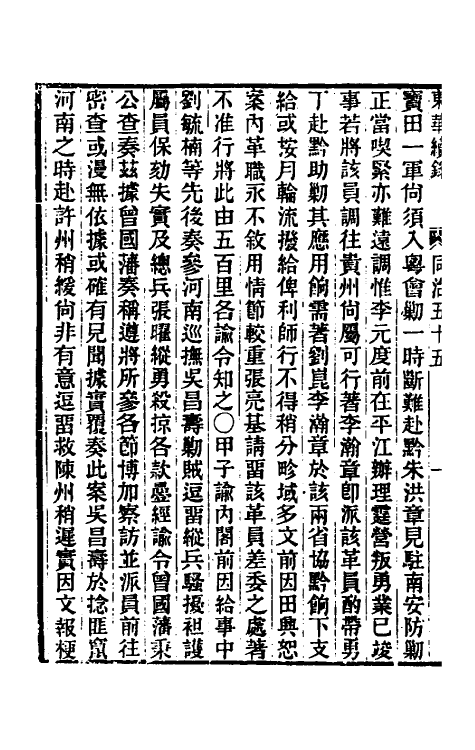 東華續錄 同治五十五 一
寶田一軍尙須入粵會勦一時斷難赴黔朱洪章見駐南安防勦
正當喫緊亦難遠調惟李元度前在平江辦理霆營叛勇業已竣
事若將該員調往貴州尙屬可行著李瀚章卽派該革員酌帶勇
丁赴黔助勦其應用餉需著劉崑李瀚章於該兩省協黔餉下支
給或按月輪流撥給俾利師行不得稍分畛域多文前因田興恕
案內革職永不敘用情節較重張亮基請畱該革員差委之處著
不准行將此由五百里各諭令知之〇甲子諭內閣前因給事中
劉毓楠等先後奏參河南巡撫吳昌壽勦賊逗畱縱兵騷擾袒護
屬員保劾失實及總兵張曜縱勇殺掠各款疊經諭令曾國藩秉
公查奏茲據曾國藩奏稱遵將所參各節博加察訪並派員前往
密查或漫無依據或確有見聞據實覆奏此案吳昌壽於捻匪竄
河南之時赴許州稍緩尙非有意逗畱救陳州稍遲實因文報梗